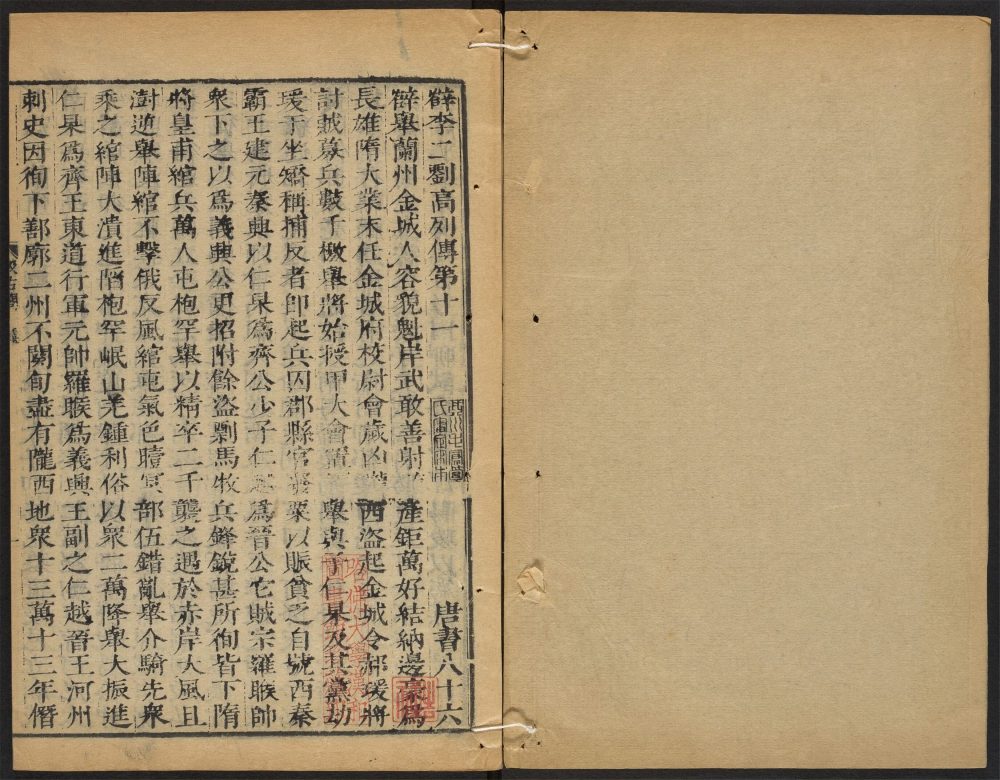 薛李二劉高列傳第十一 唐書八十六
薛舉蘭州金城人容貌魁岸武敢善射 產鉅萬好結納邊豪爲
長雄隋大業末任金城府校尉會歲凶 西盜起金城令郝瑗將
討賊募兵數千檄舉將始授甲大會 舉與子仁杲及其黨劫
瑗于坐矯稱捕反者卽起兵囚郡縣官發粟以賑貧乏自號西秦
霸王建元秦興以仁杲爲齊公少子仁越爲晉公它賊宗羅睺帥
衆下之以爲義興公更招附餘盜剽馬牧兵鋒銳甚所徇皆下隋
將皇甫綰兵萬人屯枹罕舉以精卒二千襲之遇於赤岸大風且
澍逆舉陣綰不擊俄反風綰屯氣色曀冥部伍錯亂舉介騎先衆
乘之綰陣大潰進陷枹罕岷山羌鍾利俗以衆二萬降舉大振進
仁杲爲齊王東道行軍元帥羅睺爲義興王副之仁越晉王河州
刺史因徇下鄯廓二州不閱旬盡有隴西地衆十三萬十三年僭